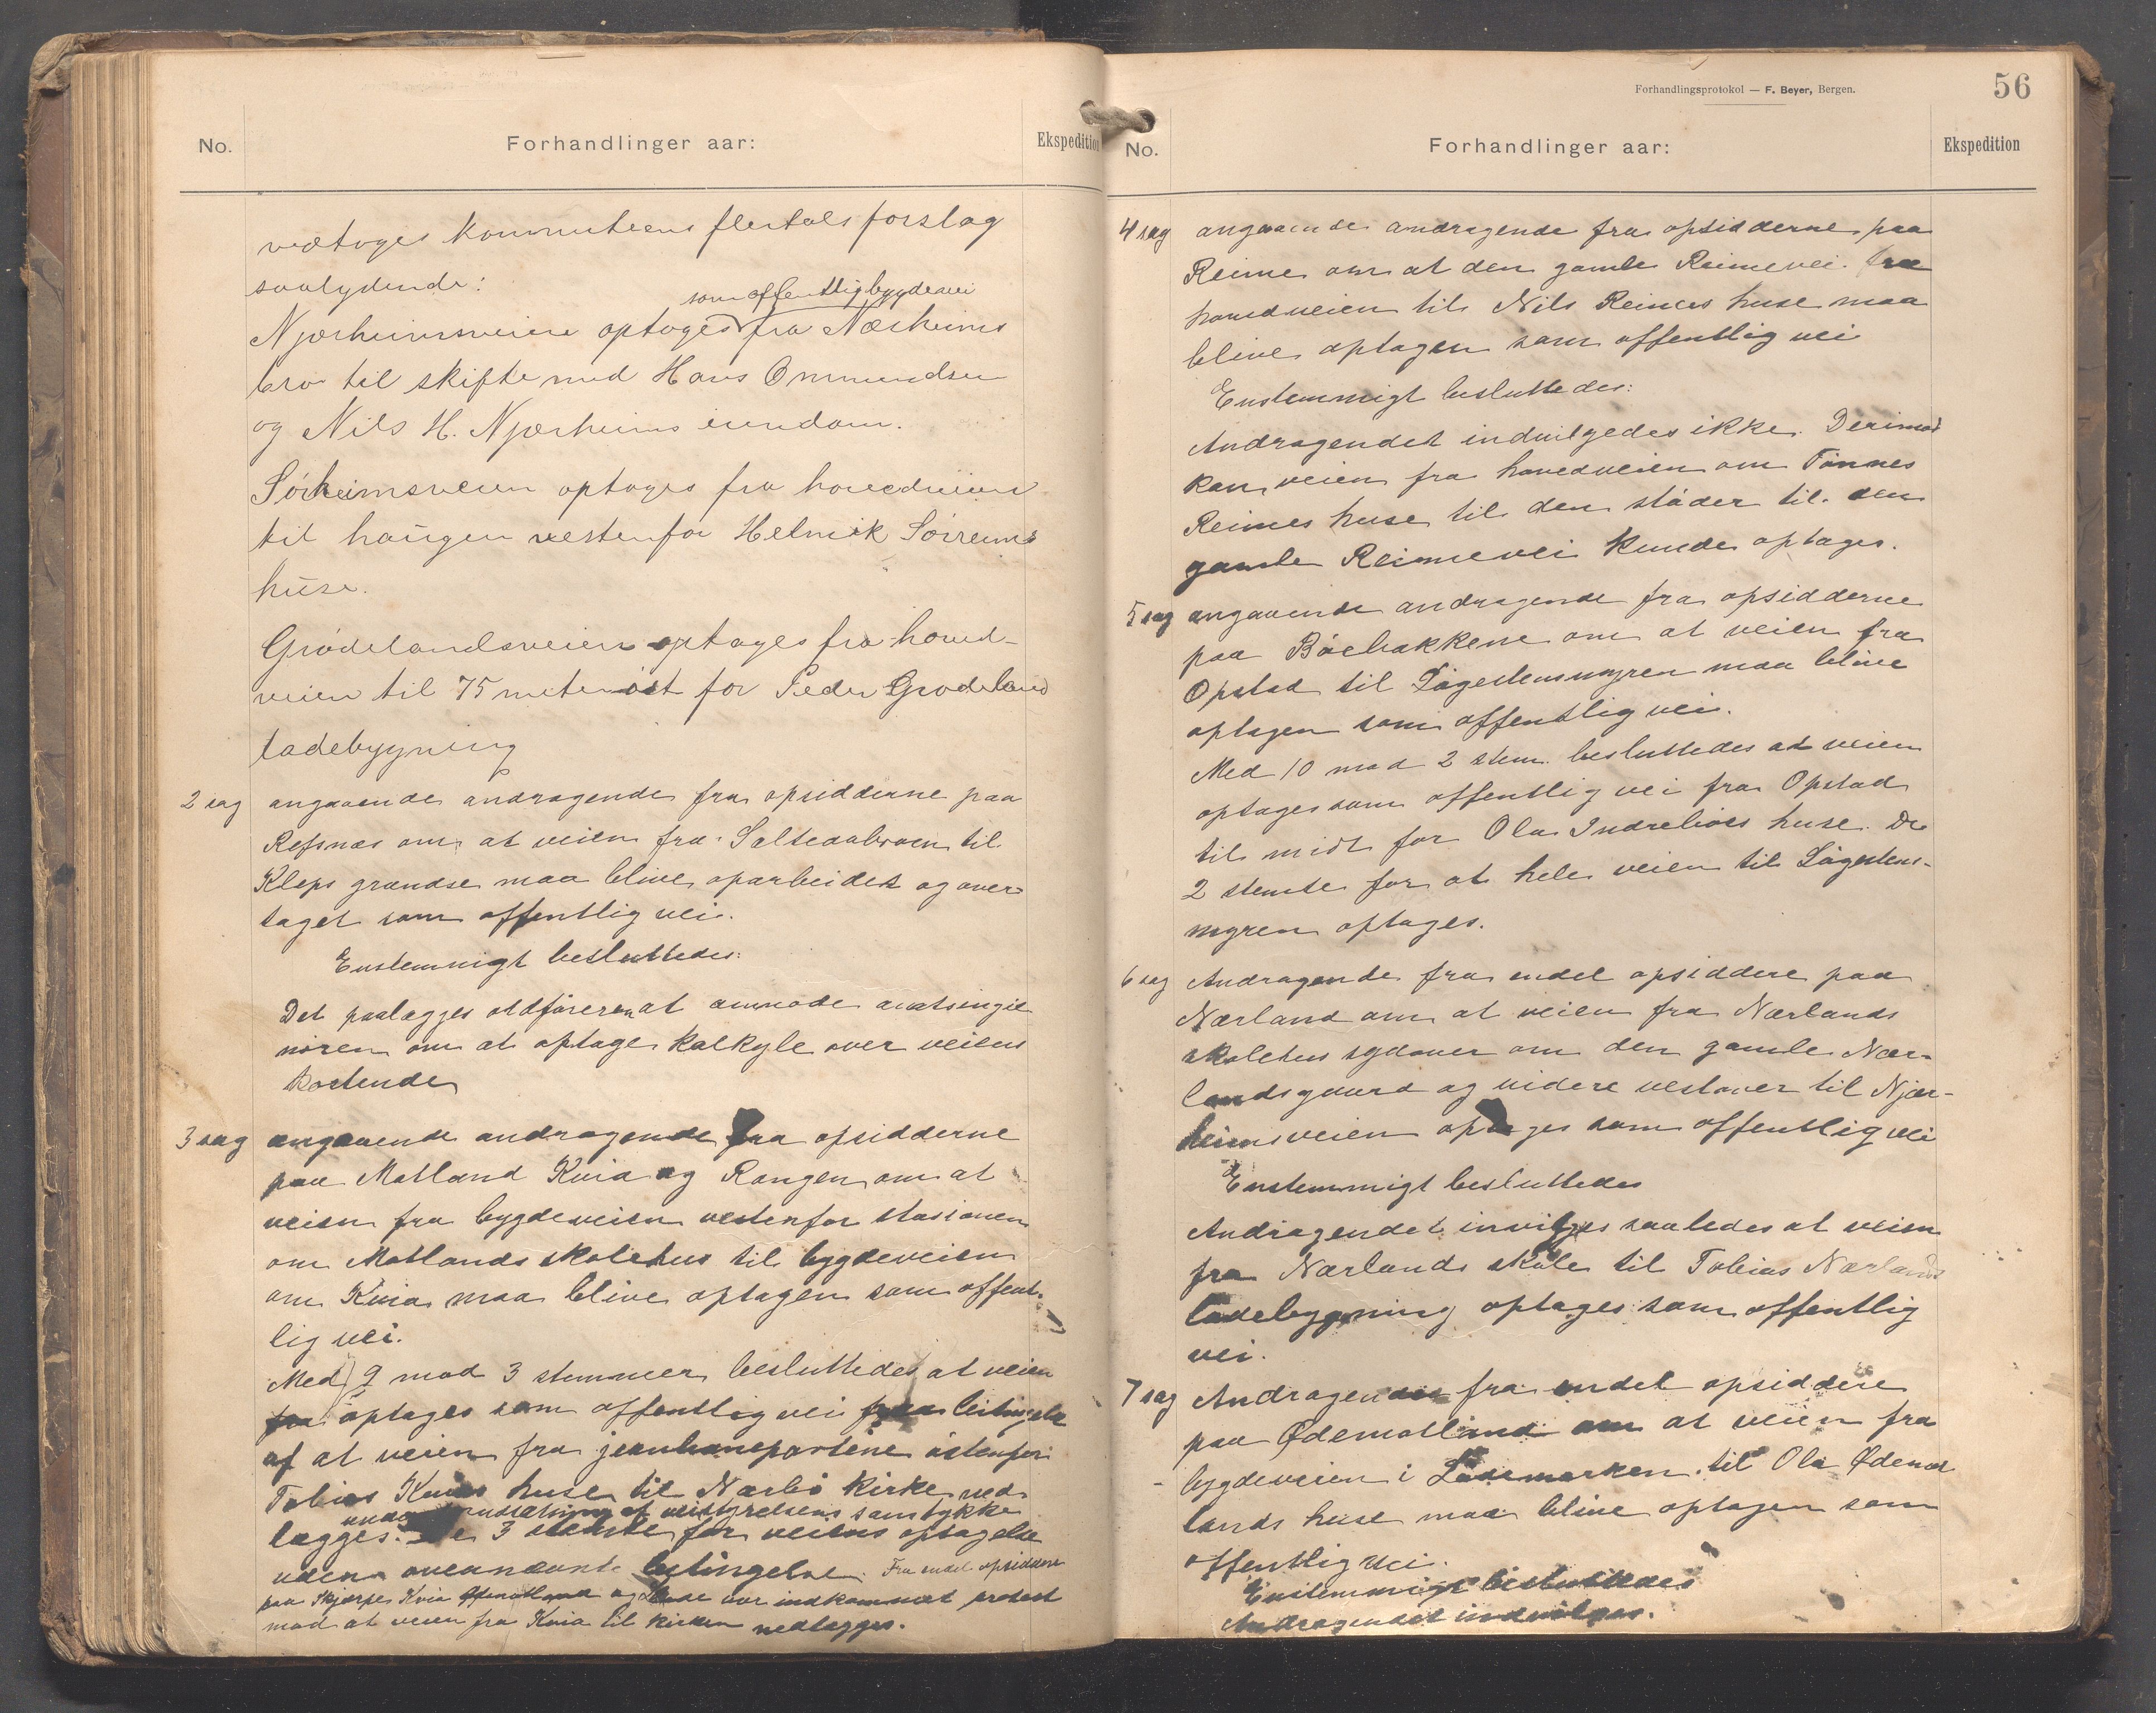 No.
Forhandlinger aar:
Ekspedition
vedtoges kommiteens flertals forslag
saalydende:
som offentlig bygdevei
Njærheimsveiene optoges fra Nærheims
bro til skifte med Hans Ommundsen
og Nils H. Njærheims eiendom.
Sörheimsveien optoges fra hovedveien
til haugen vestenfor Helmik Sörreims
huse.
Grödelandsveien optages fra hoved-
veien til 75 meter öst for Peder Grødeland
ladebygning
2 sag angaaende andragende fra opsidderne paa
Refsnæs om at veien fra Salteaabroen til
Kleps grændse maa blive oparbeidet og over
taget som offentlig vei.
Enstemmigt besluttedes:
Det paalægges ordföreren at anmode amtsingie
nören om at optage kalkyle over veiens
kostende
3 sag angaaende andragende fra opsidderne
paa Motland Kvia og Rongen om at
veien fra bygdeveien vestenfor stasionen
om Motlands skolehus til bygdeveien
om Kvia maa blive optagen som offent-
lig vei.
Med 9 mod 3 stemmer besluttedes at veien
fra optages som offentlig vei betingelse
af at veien fra jernbaneportene östenfor
Tobias Kvias huse til Nærbö kirke ned-
under forudsætning af veistyrelsens samtykke
lægges. De 3 stemte for veiens optagelse
uden ovennævnte betingelse. Fra endel opsiddere
paa Skjærpe Kvia og var indkommet protest
mod at veien fra Kvia til kirken nedlægges.
Forhandlingsprotokol — F. Beyer, Bergen.
56
No.
Forhandlinger aar:
Ekspedition
4 sag angaaende andragende fra opsidderne paa
Reime om at den gamle Reimevei fra
hovedveien til Nils Reimes huse maa
blive optagen som offentlig vei
Enstemmigt besluttedes:
Andragendet indvilgedes ikke. Derimod
kan veien fra hovedveien om Tönnes
Reimes huse til den stöder til den
gamle Reimevei kunde optages.
5 sag angaaende andragende fra opsidderne
paa Böebakkene om at veien fra
Opstad til Lögestensmyren maa blive
optagen som offentlig vei.
Med 10 mod 2 stem. besluttedes at veien
optages som offentlig vei fra Opstad
til midt for Ola Indreböes huse. De
2 stemte for at hele veien til Lögestens-
myren optages.
6 sag Andragende fra endel opsiddere paa
Nærland om at veien fra Nærlands
skolehus sydover om den gamle Nær-
landsgaard og videre vestover til Njær-
heimsveien optages som offentlig vei
Enstemmigt besluttedes
Andragendet invilges saaledes at veien
fra Nærlands skole til Tobias Nærlands
ladebygning optages som offentlig
vei.
7 sag Andragende fra endel opsiddere
paa Ødemotland om at veien fra
bygdeveien i Lodemarken til Ola Ødemot
lands huse maa blive optagen som
offentlig vei.
Enstemmigt besluttedes
Andragendet indvilges.